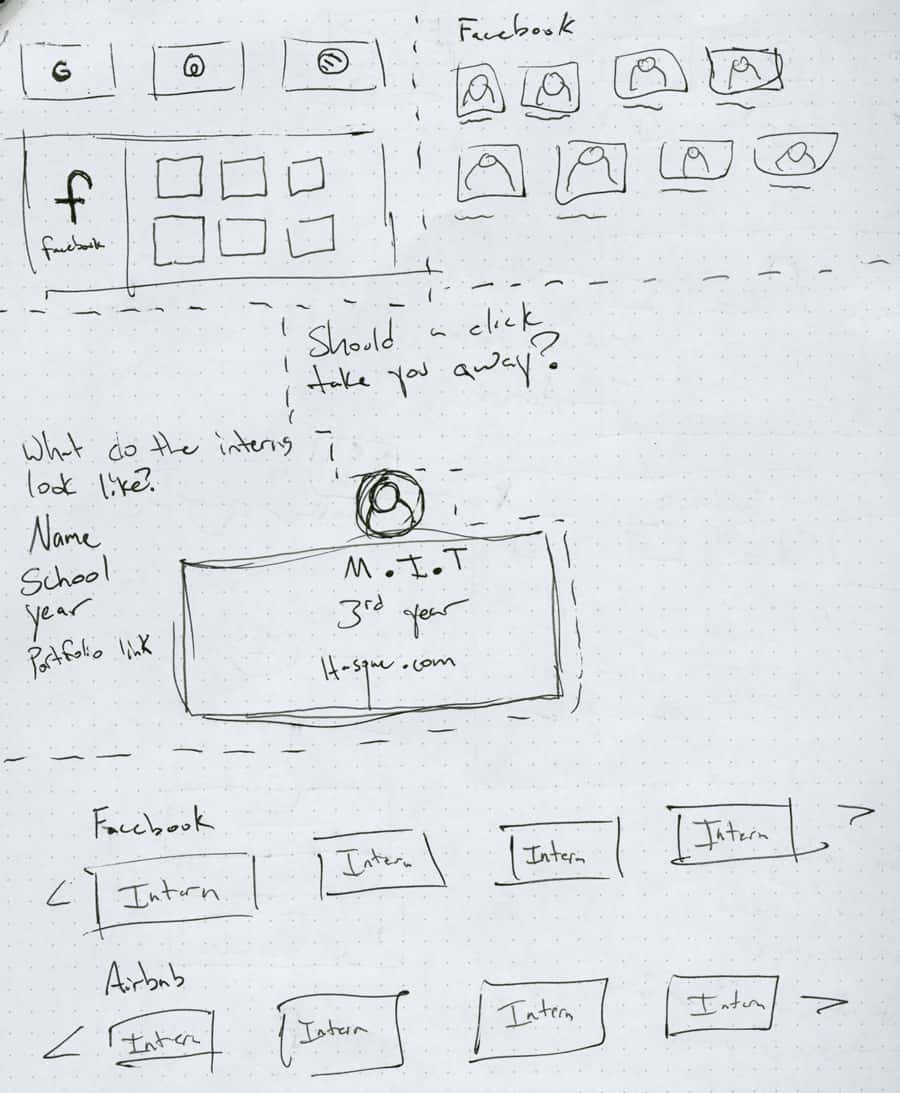 G
f
facebook
Facebook
Should a click
take you away?
What do the interns
look like?
Name
School
year
Portfolio link
M.I.T
3rd year
Facebook
< Intern Intern Intern Intern >
Airbnb
< Intern Intern Intern Intern >